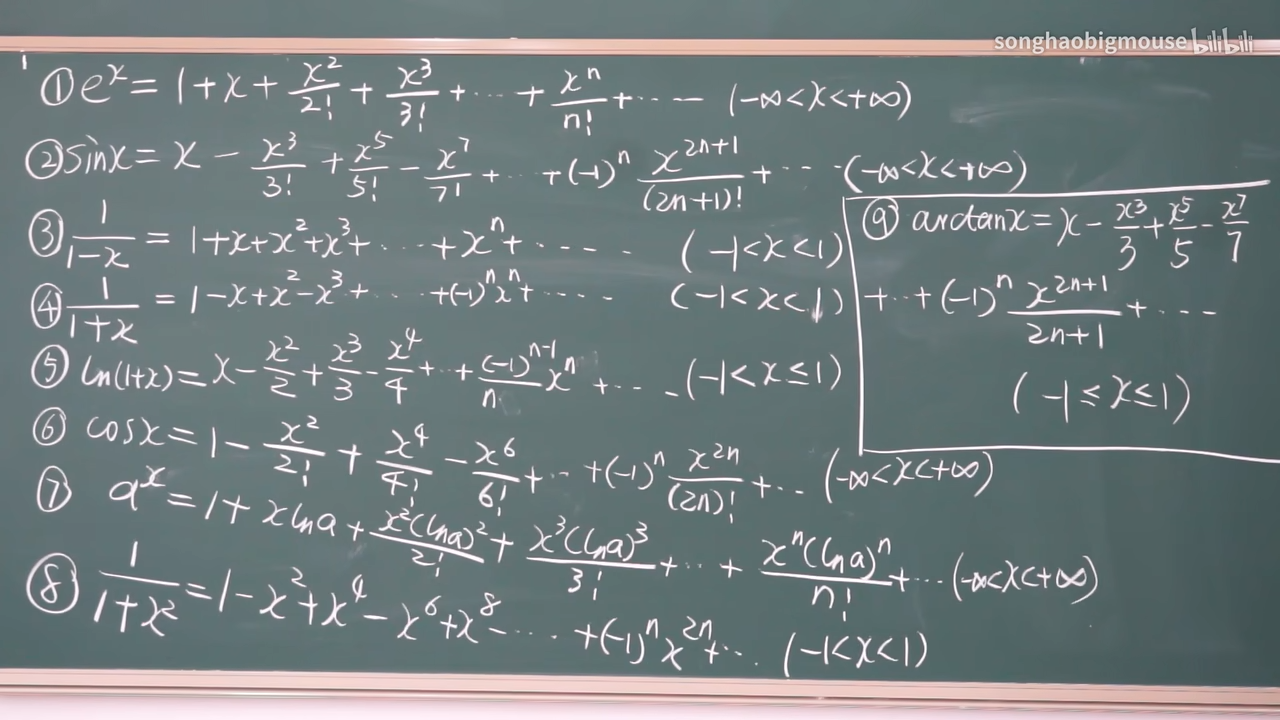 songhaobigmouse bilibili
① e^x = 1 + x + x^2/2! + x^3/3! + ··· + x^n/n! + ··· (-∞<x<+∞)
② sinx = x - x^3/3! + x^5/5! - x^7/7! + ··· + (-1)^n x^(2n+1)/(2n+1)! + ··· (-∞<x<+∞)
③ 1/(1-x) = 1+x+x^2+x^3+ ··· +x^n+ ··· (-1<x<1)
④ 1/(1+x) = 1-x+x^2-x^3+ ··· +(-1)^n x^n+ ··· (-1<x<1)
⑤ ln(1+x) = x - x^2/2 + x^3/3 - x^4/4 + ·· + (-1)^(n-1)/n x^n + ··· (-1<x≤1)
⑥ cosx = 1 - x^2/2! + x^4/4! - x^6/6! + ·· + (-1)^n x^(2n)/(2n)! + ··· (-∞<x<+∞)
⑦ a^x = 1 + xlna + x^2(lna)^2/2! + x^3(lna)^3/3! + ··· + x^n(lna)^n/n! + ··· (-∞<x<+∞)
⑧ 1/(1+x^2) = 1-x^2+x^4-x^6+x^8- ··· +(-1)^n x^(2n)+ ··· (-1<x<1)
⑨ arctanx = x - x^3/3 + x^5/5 - x^7/7
+ ·· + (-1)^n x^(2n+1)/(2n+1) + ···
(-1≤x≤1)